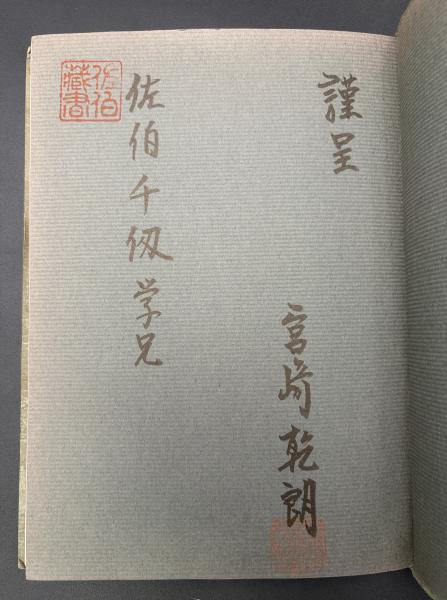 謹呈
宮﨑乾朗
佐伯千仭学兄
佐伯蔵書